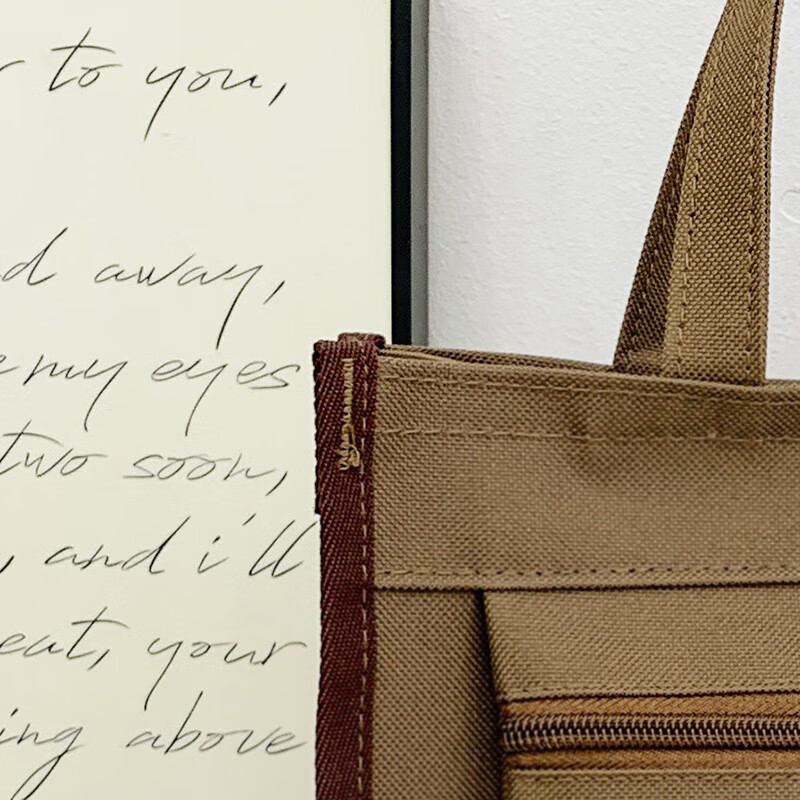 to you,
away,
my eyes
two soon,
, and i'll
your
above